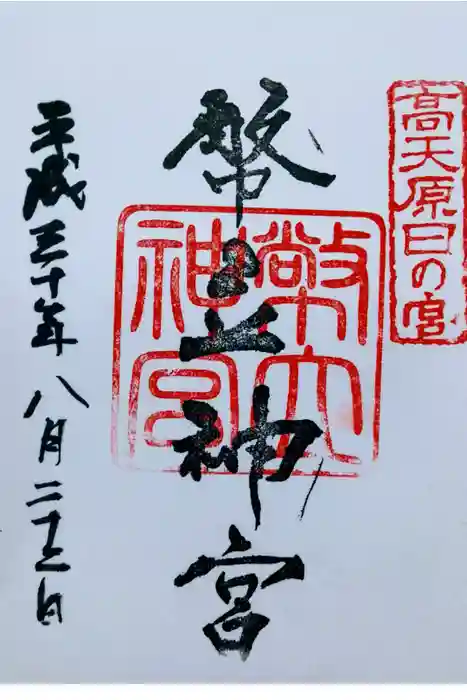 高天原日の宮
幣立神宮
幣立神宮
平成三十年八月二十三日